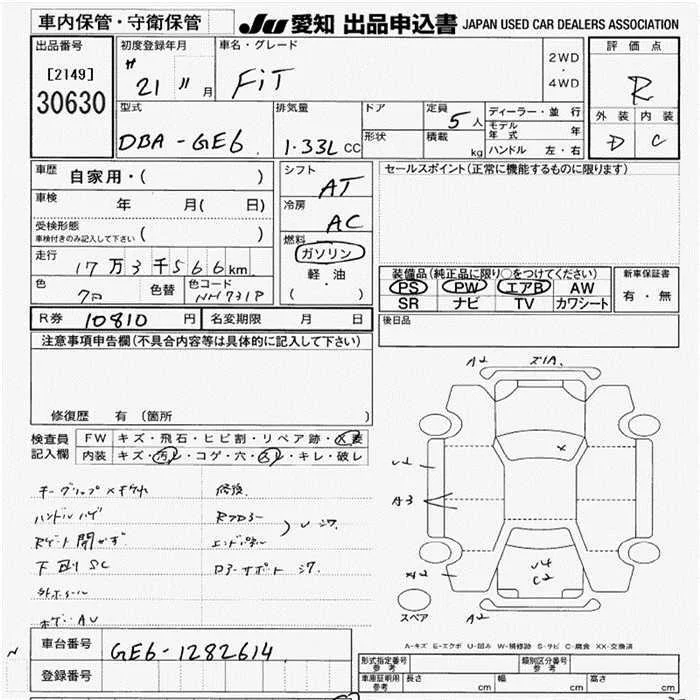 車内保管・守衛保管
JU 愛知 出品申込書 JAPAN USED CAR DEALERS ASSOCIATION
出品番号
[2149]
30630
初度登録年月
21 11 月
車名・グレード
FiT
2WD
・
4WD
評価点
R
外装 内装
D C
型式
DBA-GE6
排気量
1.33L CC
ドア
形状
定員
5人
積載
kg
ディーラー・並行
モデル年式 年
ハンドル 左・右
車歴
自家用・( )
車検
年 月( 日)
受検形態
車検付きのみ記入して下さい ( )
走行
17万3千566km
色
色替
色コード
NH731P
シフト
AT
冷房
AC
燃料
ガソリン
軽油
( ・ )
セールスポイント(正常に機能するものに限ります)
装備品(純正品に限り○をつけてください)
PS PW エアB AW
SR ナビ TV カワシート
新車保証書
有・無
R券 10810 円
名変期限 月 日
後日品
注意事項申告欄(不具合内容等は具体的に記入して下さい)
修復歴 有 (箇所 )
検査員
記入欄
FW キズ・飛石・ヒビ割・リペア跡・X要
内装 キズ・汚レ・コゲ・穴・スレ・キレ・破レ
ハンドルハゲ
Rゲート開かず
下廻SC
修復
Rフロアー
エンドパネル
A2
A3
U4
C2
A2
スペア
A-キズ E-エクボ U-凹み W-補修跡 S-サビ C-腐食 XX-交換済
車台番号
GE6-1282614
登録番号
型式指定番号
参考
類別区分番号
参考
車庫証明用
参考
長さ cm
幅 cm
高さ cm